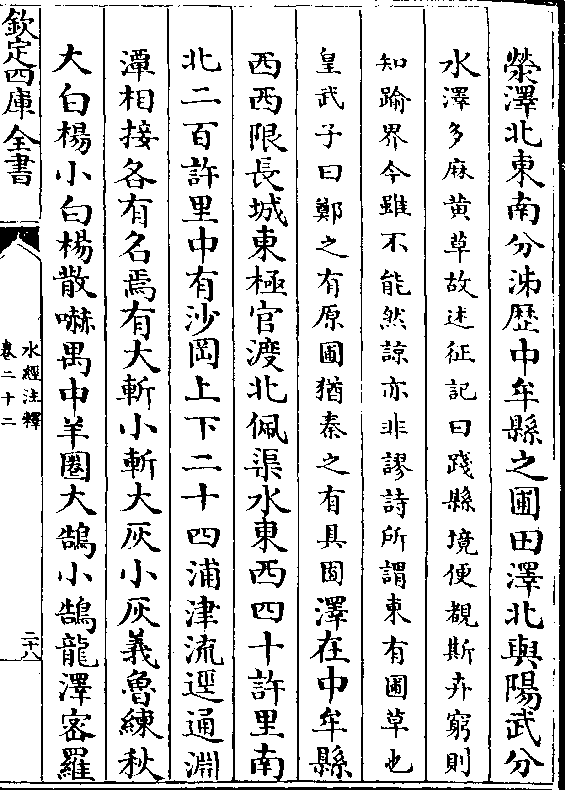 滎澤北東南分泲歷中牟縣之圃田澤北與陽武分
水澤多麻黃草故述征記曰踐縣境便覩斯卉窮則
知踰界今雖不能然諒亦非謬詩所謂東有圃草也
皇武子曰鄭之有原圃猶秦之有具囿澤在中牟縣
西西限長城東極官渡北佩渠水東西四十許里南
北二百許里中有沙岡上下二十四浦津流逕通淵
潭相接各有名焉有大斬小斬大灰小灰義魯練秋
大白楊小白楊散嚇禺中羊圈大鵠小鵠龍澤密羅
欽定四庫全書
水經注釋
卷二十二
二十八